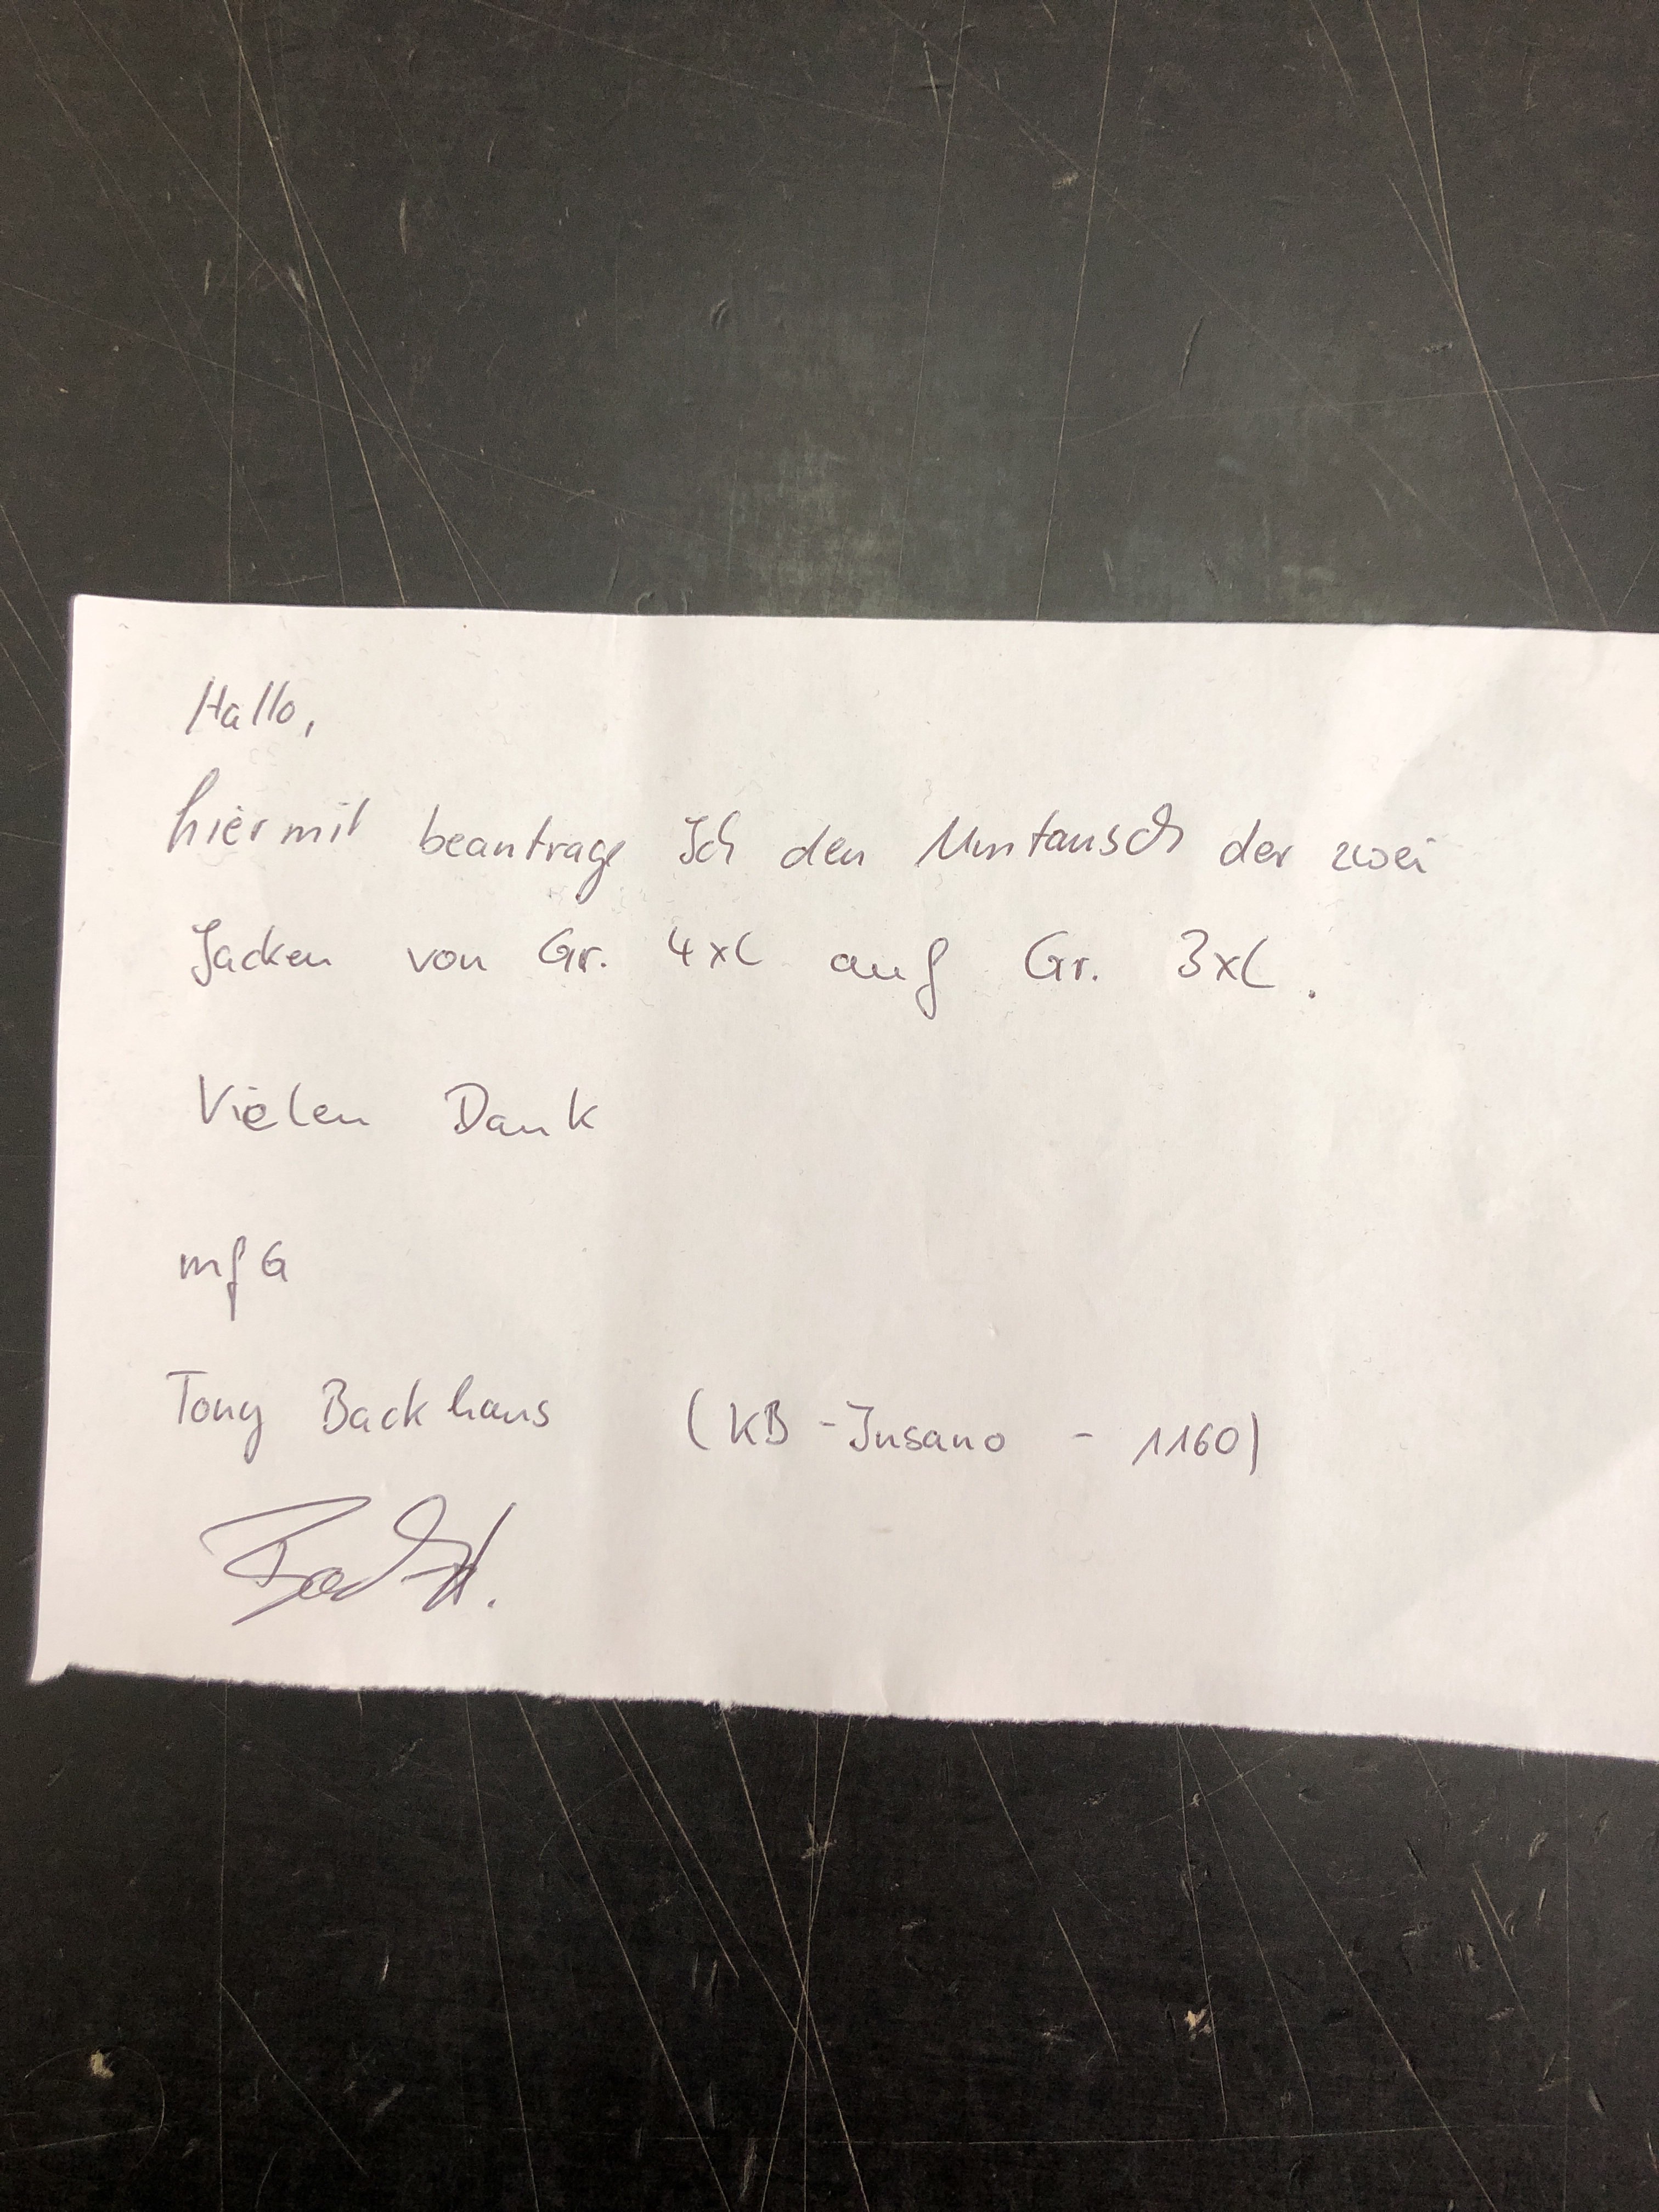 Hallo,
hiermit beantrage Ich den Umtausch der zwei
Jacken von Gr. 4xL auf Gr. 3xL.
Vielen Dank
mfG
Tony Backhaus (KB - Insano - 1160)